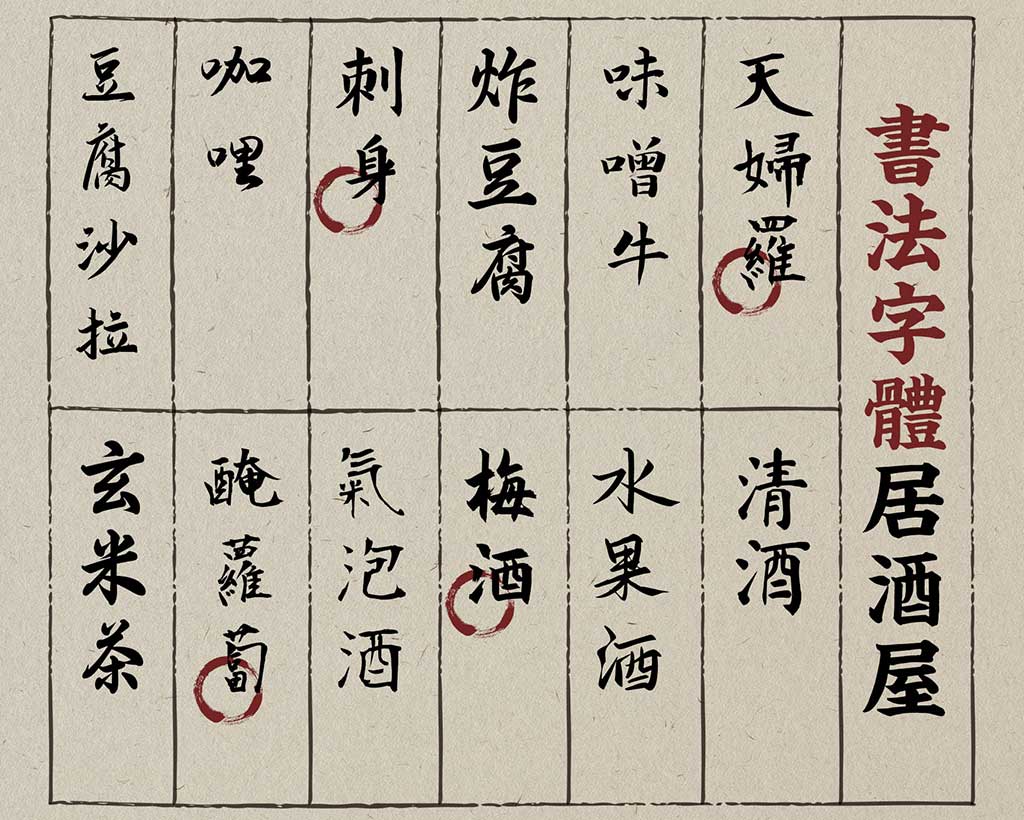 書法字體居酒屋
天婦羅
味噌牛
炸豆腐
刺身
咖哩
豆腐沙拉
清酒
水果酒
梅酒
氣泡酒
醃蘿蔔
玄米茶